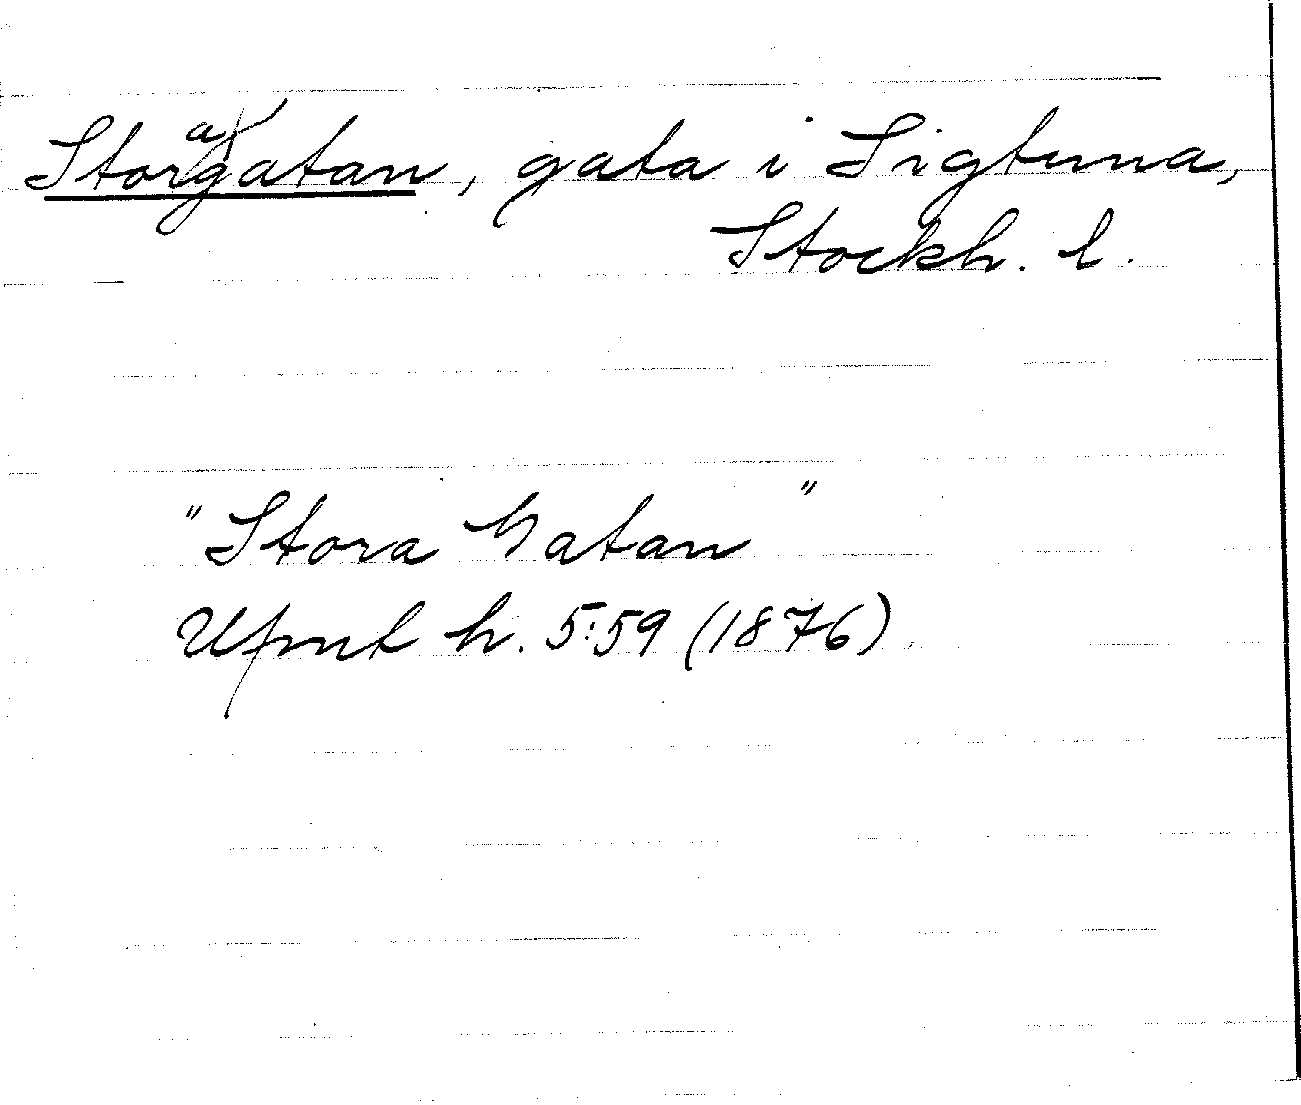 Storagatan, gata i Sigtuna,
Stockh. l.
"Stora Gatan"
Upmt h. 5:59 (1876)